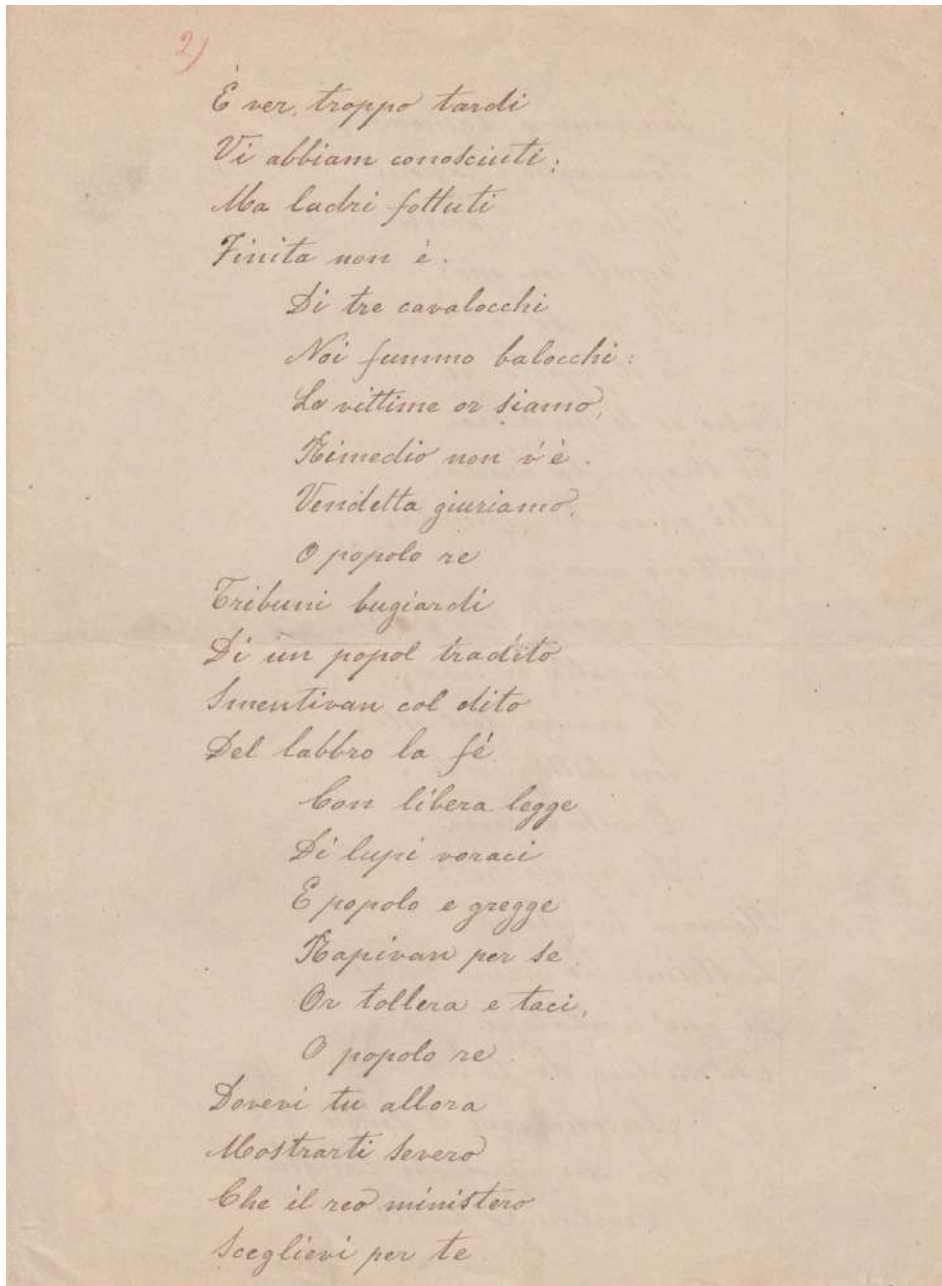 2)
È ver, troppo tardi
Vi abbiam conosciuti;
Ma ladri fottuti
Finita non è.
Di tre cavalocchi
Noi fummo balocchi:
Le vittime or siamo,
Rimedio non v'è.
Vendetta giuriamo,
O popolo re
Tribuni bugiardi
Di un popol tradito
Smentivan col dito
Del labbro la fé.
Con libera legge
Di lupi voraci
E popolo e gregge
Rapivan per se.
Or tollera e taci,
O popolo re.
Dovevi tu allora
Mostrarti severo
Che il reo ministero
Sceglievi per te